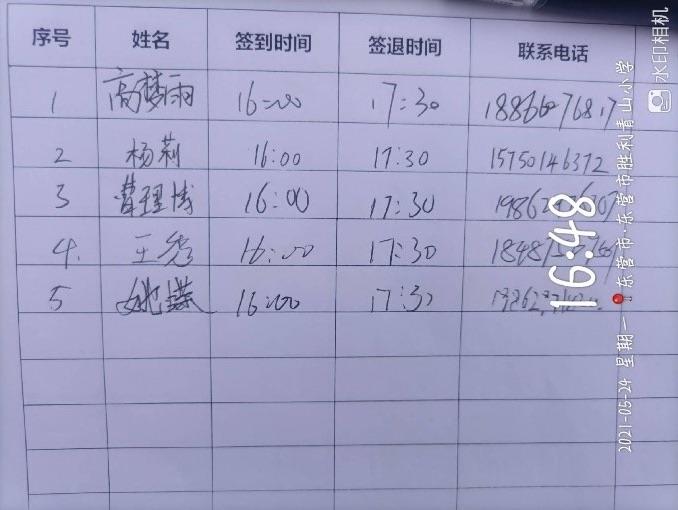 序号 姓名 签到时间 签退时间 联系电话
1 高梦雨 16:00 17:30
2 杨莉 16:00 17:30 15750146372
3 曹理博 16:00 17:30
4. 王秀 16:00 17:30
5 姚蝶 16:00 17:30
水印相机
16:48
2021-05-24 星期一
东营市·东营市胜利青山小学